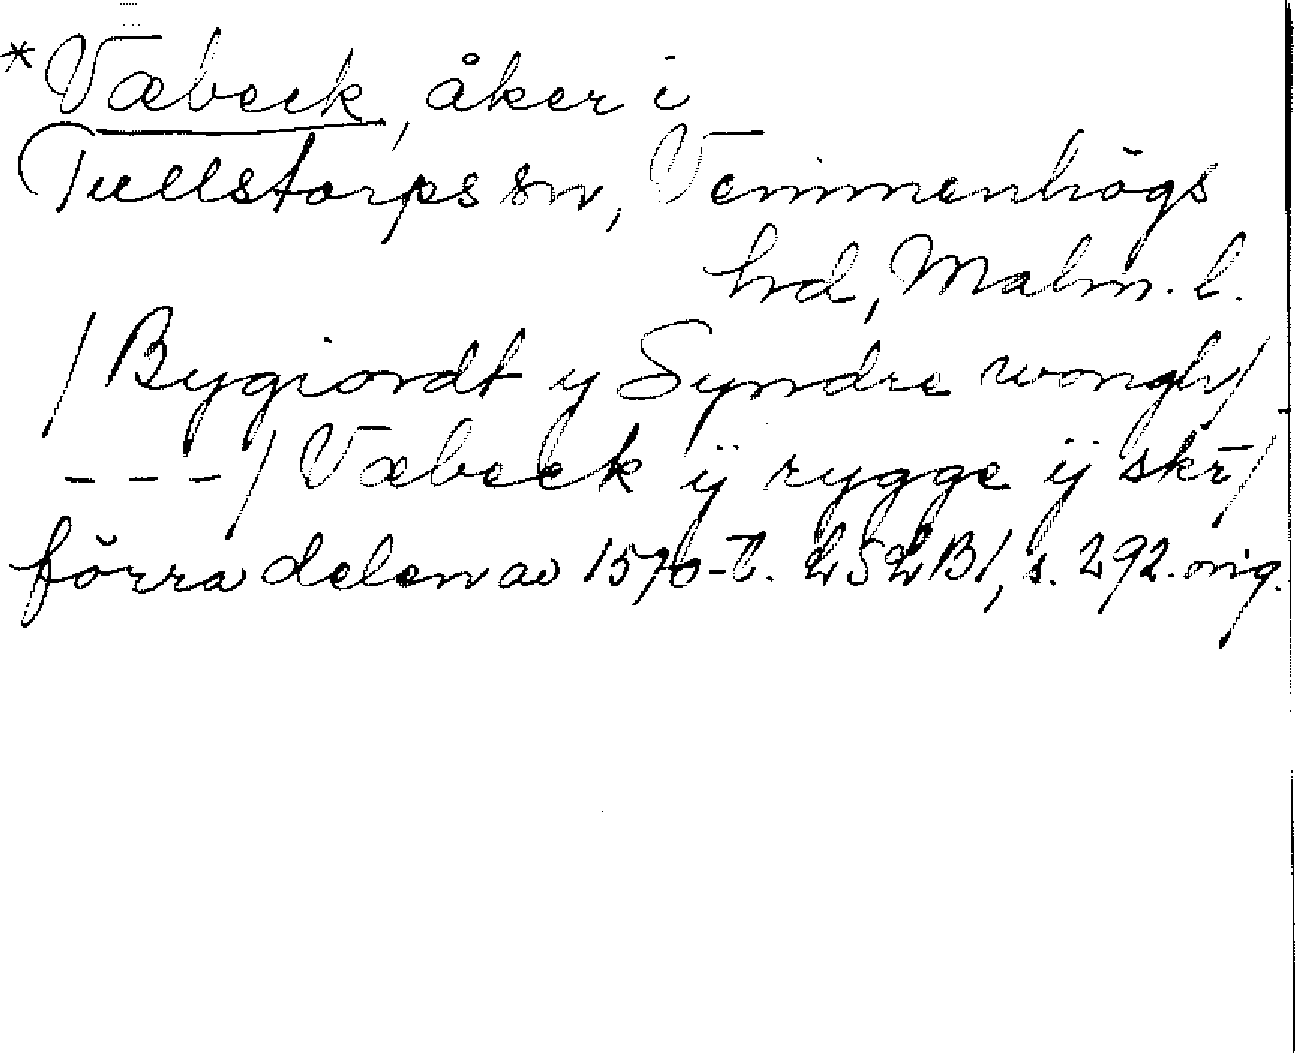 *Væbeck, åker i
Tullstorps sn, Vemmenhögs
hd, Malm. l.
/Bygiordt y Syndre wongh/
- - -/ Væbeck ij rygge ij skr/
förra delen av 1570-t. LSLB1, s. 292. orig.